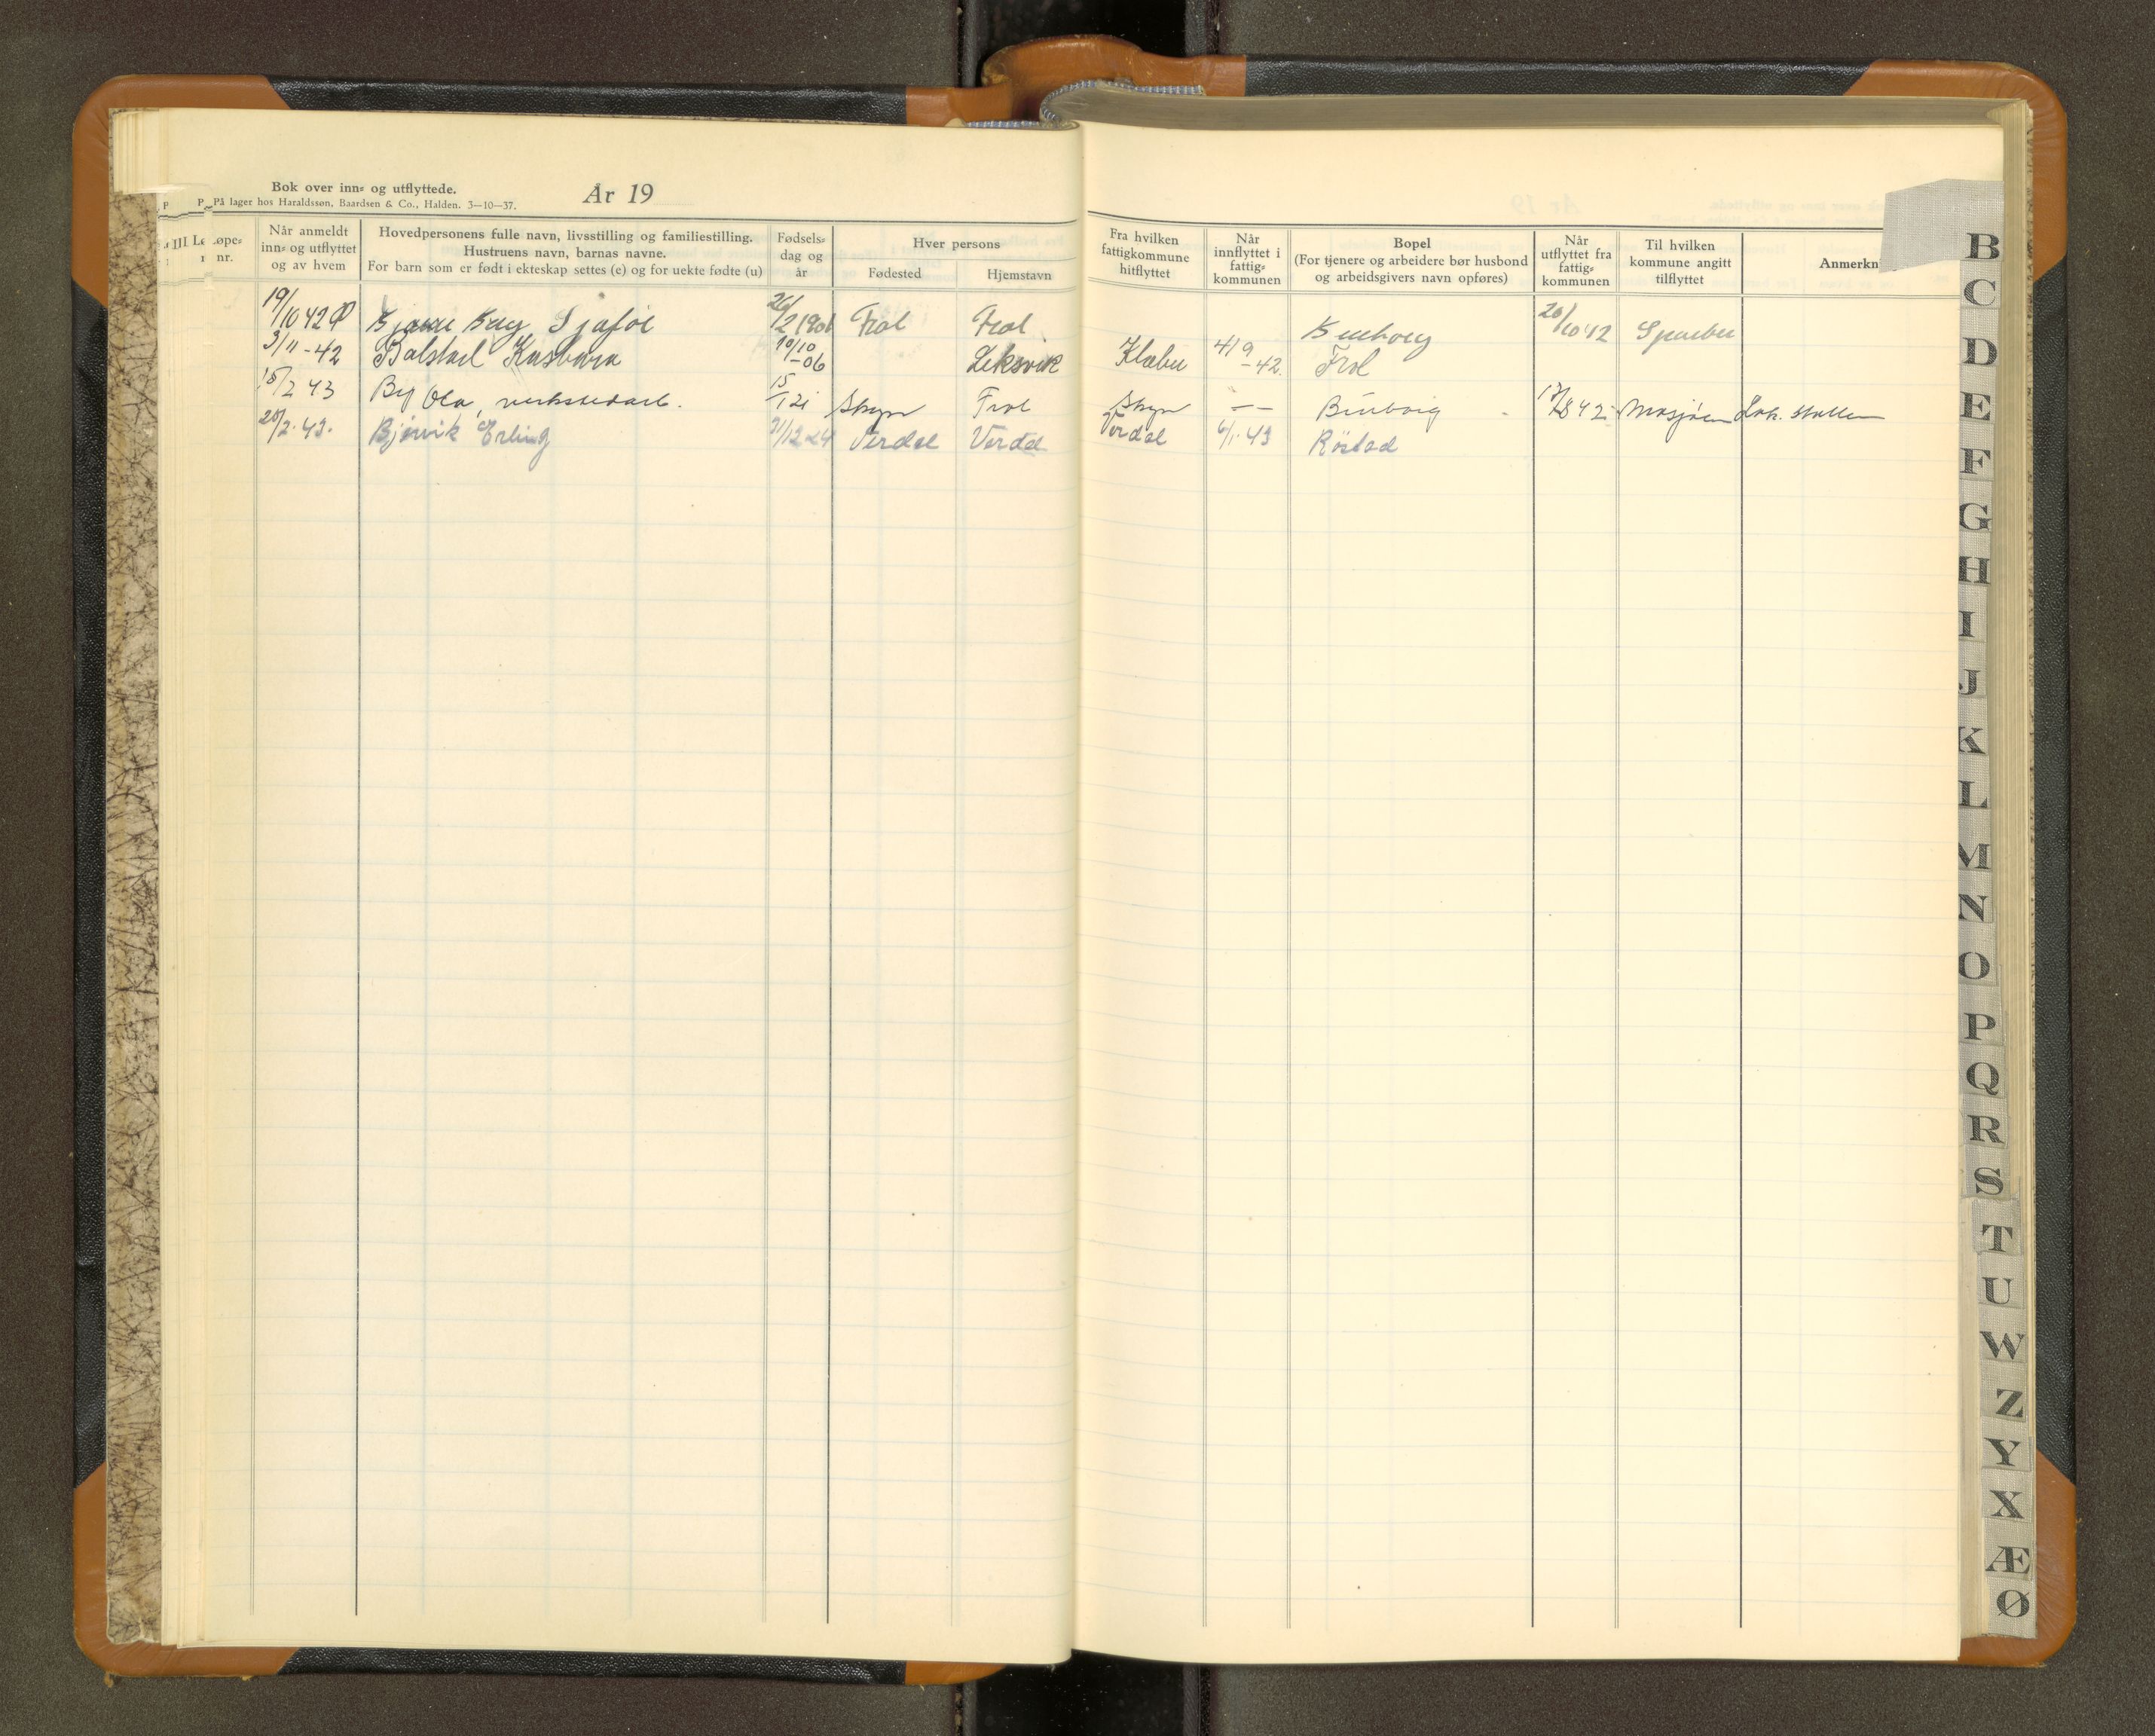 Bok over inn- og utflyttede.
På lager hos Haraldssøn, Baardsen & Co., Halden. 3—10—37.
År 19
Løpe-
nr.
Når anmeldt
inn- og utflyttet
og av hvem
Hovedpersonens fulle navn, livsstilling og familiestilling.
Hustruens navn, barnas navne.
For barn som er født i ekteskap settes (e) og for uekte fødte (u)
Fødsels-
dag og
år
Hver persons
Fødested
Hjemstavn
Fra hvilken
fattigkommune
hitflyttet
Når
innflyttet i
fattig-
kommunen
Bopel
(For tjenere og arbeidere bør husbond
og arbeidsgivers navn opføres)
Når
utflyttet fra
fattig-
kommunen
Til hvilken
kommune angitt
tilflyttet
Anmerkn
19/10 42 26/2 1901 Frol Frol 20/10 42
3/11-42 Balstad 10/10-06 Leksvik Klæbu 4/9-42. Frol
15/2 43 By Ola, verkstedarb. 15/1 21 Skogn Frol Skogn — — 42 Mosjøen
20/2.43. Bjørvik Erling 31/12 24 Verdal Verdal Verdal 6/1.43 Röstad
B
C
D
E
F
G
H
I
J
K
L
M
N
O
P
Q
R
S
T
U
W
Z
Y
X
Æ
Ø